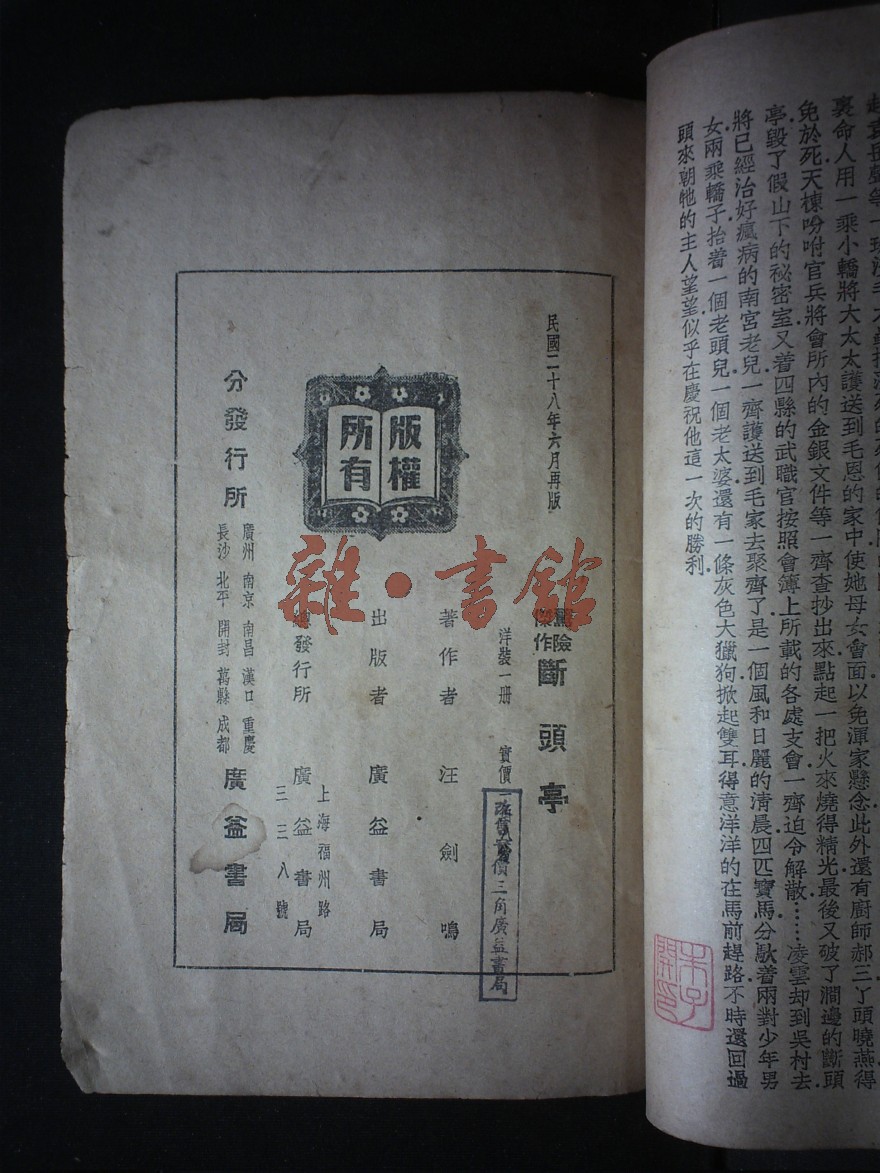 裏命人用一乘小轎將大太太護送到毛恩的家中使她母女會面以免渾家懸念此外還有廚師郝三丫頭曉燕得
免於死天棟吩咐官兵將會所內的金銀文件等一齊查抄出來點起一把火來燒得精光最後又破了澗邊的斷頭
亭毀了假山下的祕密室又着四縣的武職官按照會簿上所載的各處支會一齊迫令解散……凌雲却到吳村去
將已經治好瘋病的南宮老兒一齊護送到毛家去聚齊了是一個風和日麗的清晨四匹寶馬分馱着兩對少年男
女兩乘轎子抬着一個老頭兒一個老太婆還有一條灰色大獵狗掀起雙耳得意洋洋的在馬前趕路不時還回過
頭來朝牠的主人望望似乎在慶祝他這一次的勝利
民國二十八年六月再版
版權
所有
驚險
傑作
斷頭亭
洋裝一册 實價
價三角廣益書局
著作者 汪劍鳴
出版者 廣益書局
總發行所 廣益書局
上海福州路
三三八號
分發行所
廣州 南京 南昌 漢口 重慶
長沙 北平 開封 萬縣 成都
廣益書局
雜·書館